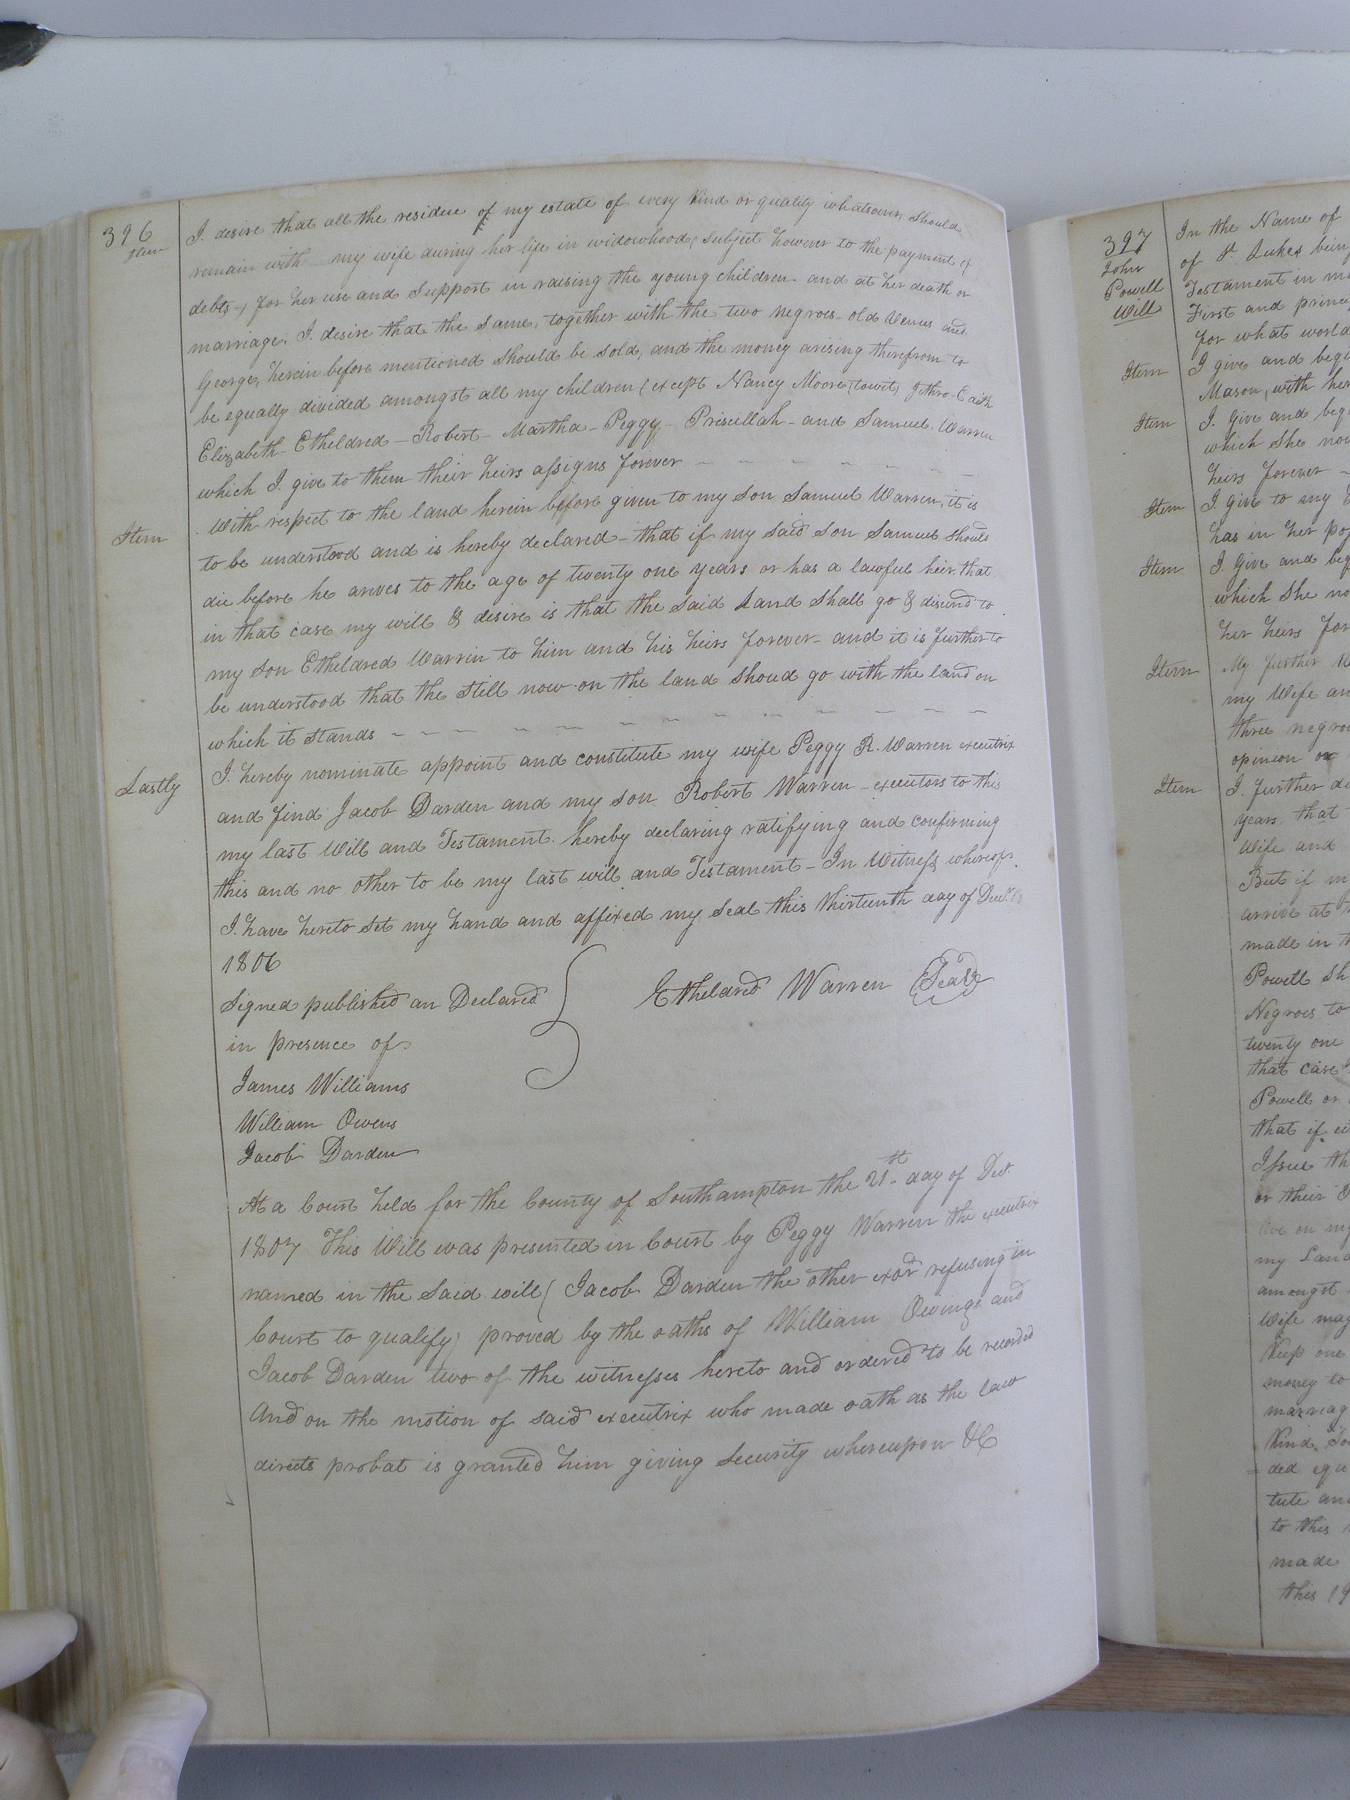 396
Item
I. desire that all the residue of my estate of every kind or quality whatsoever, should
remain with my wife during her life in widowhood, subject however to the payment of
debts, for her use and Support in raising the young children - and at her death or
marriage. I. desire that the same, together with the two negroes - old Venus and
George, herein before mentioned should be sold, and the money arising therefrom to
be equally divided amongst all my children (except Nancy Moore, (towit) Jethro - E
Elizabeth - Etheldred - Robert - Martha - Peggy - Priscillah - and Samuel Warren
which I. give to them their heirs assigns forever
Item
With respect to the land herein before given to my son Samuel Warren, it is
to be understood and is hereby declared - that if my said son Samuel should
die before he arives to the age of twenty one years or has a lawful heir that
in that case my will & desire is that the said Land shall go & disend to
my son Etheldred Warrin to him and his heirs forever - and it is further to
be understood that the still now on the land shoud go with the land on
which it stands
Lastly
I. hereby nominate appoint and constitute my wife Peggy R. Warren executrix
and find Jacob Darden and my son Robert Warren - executors to this
my last Will and Testament. hereby declaring ratifying and confirming
this and no other to be my last will and Testament - In Witness whereof
I. have hereto Set my hand and affixed my Seal this thirteenth day of
1806
Signed published an Declared
in presence of
Etheldred Warren Seal
James Williams
William Owens
Jacob Darden
At a Court held for the County of Southampton the 21st day of Det.
1807 This Will was presented in Court by Peggy Warren the executrix
named in the Said will ( Jacob Darden the other exor refusing in
Court to qualify) proved by the oaths of William Owings and
Jacob Darden two of the witnesses hereto and ordered to be recorded
And on the motion of said executrix who made oath as the law
directs probat is granted him giving Security whereupon &C
397
John
Powell
Will
In the Name of
of St Lukes bein
Testament in m
First and prin
for what world
Item
I give and beq
Mason, with her
Item
I. Give and beq
which She no
heirs forever
Item
I. Give to my
has in her po
Item
I. Give and beq
which She no
her heirs for
Item
My further
my Wife an
three negro
opinion or
Item
I. further de
years. that
Wife and
But if m
arrive at
made in t
Powell Sh
Negroes to
twenty one
that case
Powell or
that if
Issue th
or their
on my
my Land
amongst
Wife may
Keep one
money to
marriag
Kind. To
ded equ
tute and
to this
made
this 19